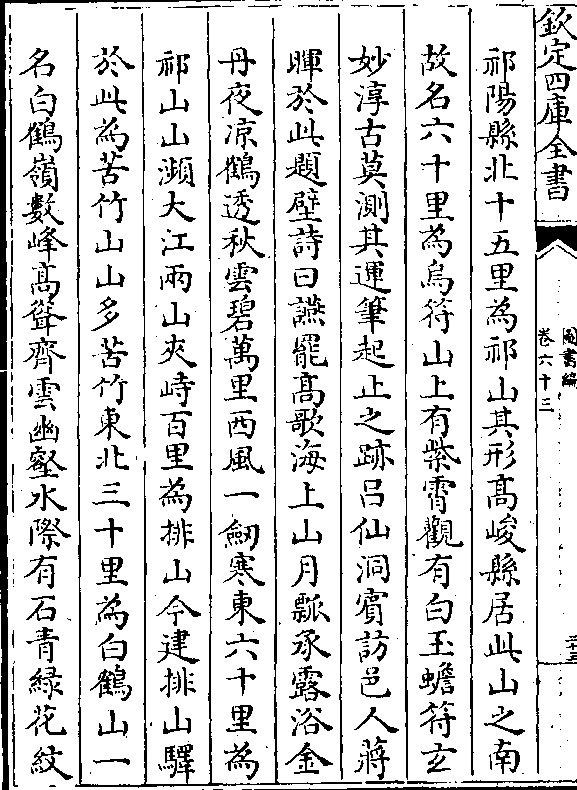 欽定四庫全書
圖書編
卷六十三
祁陽縣北十五里為祁山其形髙峻縣居此山之南
故名六十里為烏符山上有紫霄觀有白玉蟾符玄
妙淳古莫測其運筆起止之跡吕仙洞賓訪邑人蔣
暉於此題壁詩曰讌罷髙歌海上山月瓢承露浴金
丹夜凉鶴透秋雲碧萬里西風一劒寒東六十里為
祁山山瀕大江兩山夾峙百里為排山今建排山驛
於此為苦竹山山多苦竹東北三十里為白鶴山一
名白鶴嶺數峰髙聳齊雲幽壑水際有石青緑花紋